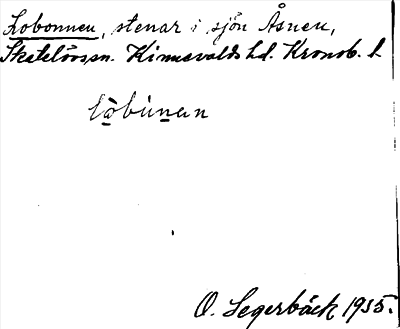 Lobonnen, stenar i sjön Åsnen,
Skatelövs sn. Kinnevalds hd. Kronob. l.
lo̲bún̲an
O. Segerbäck 1935.